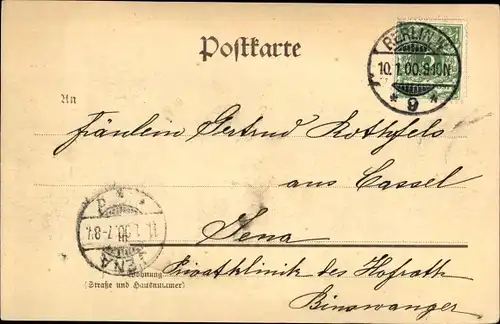 Postkarte
BERLIN W.
10.1.00.9-10N
* 9 *
An
Fräulein Gertrud Rothfels
aus Cassel
Jena
JENA
11.1.00.7-8V.
Wohnung
(Straße und Hausnummer)
Privatklinik des Hofrath
Binswanger